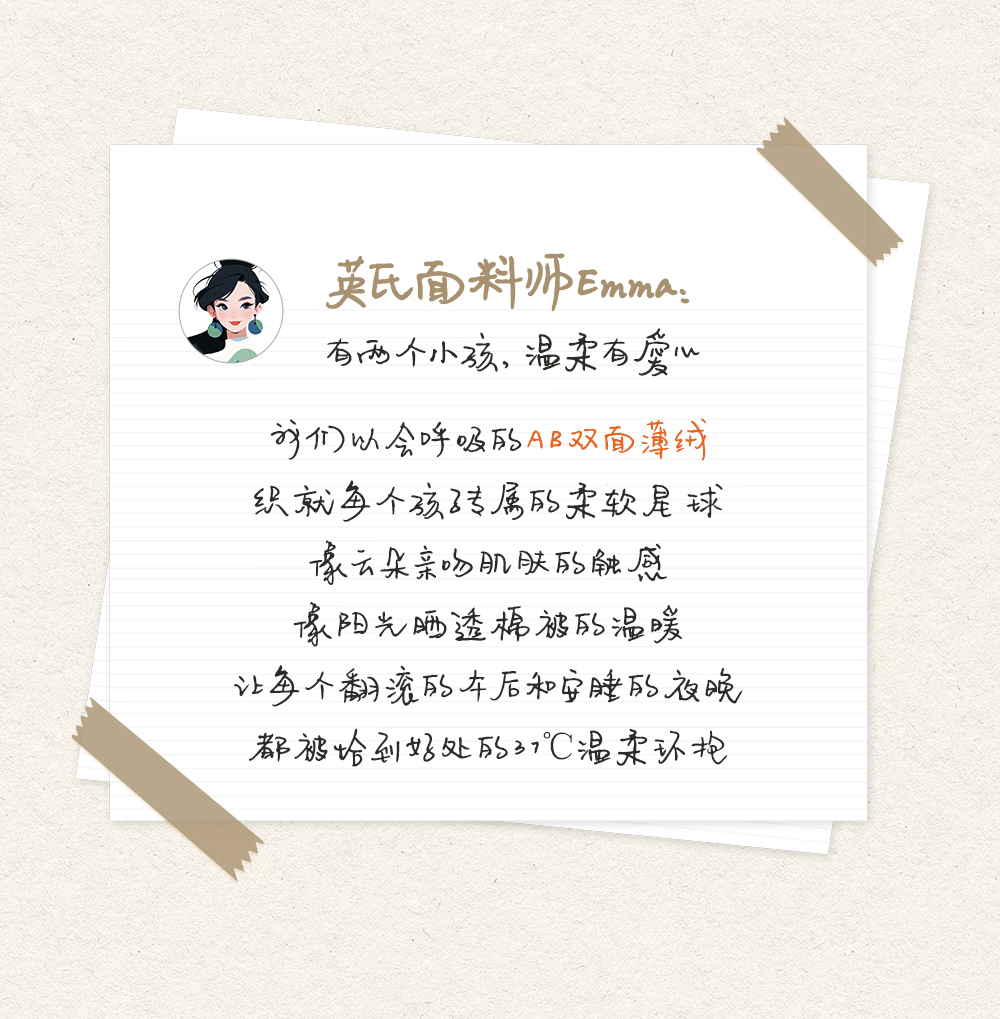 英氏面料师Emma:
有两个小孩,温柔有愛心
我们以会呼吸的AB双面薄绒
织就每个孩子专属的柔软星球
像云朵亲吻肌肤的触感
像阳光晒透棉被的温暖
让每个翻滚的午后和安睡的夜晚
都被恰到好处的37℃温柔环抱